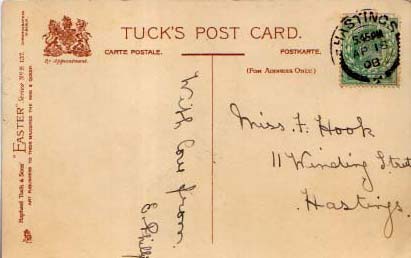 TUCK'S POST CARD.
CARTE POSTALE.
POSTKARTE.
(FOR ADDRESS ONLY)
By Appointment.
"EASTER" Series No E. 137.
Raphael Tuck & Sons'
ART PUBLISHERS TO THEIR MAJESTIES THE KING & QUEEN
HASTINGS
5.45PM
AP 18
08
With love from
Miss. F. Hook
11 Winding Street
Hastings.